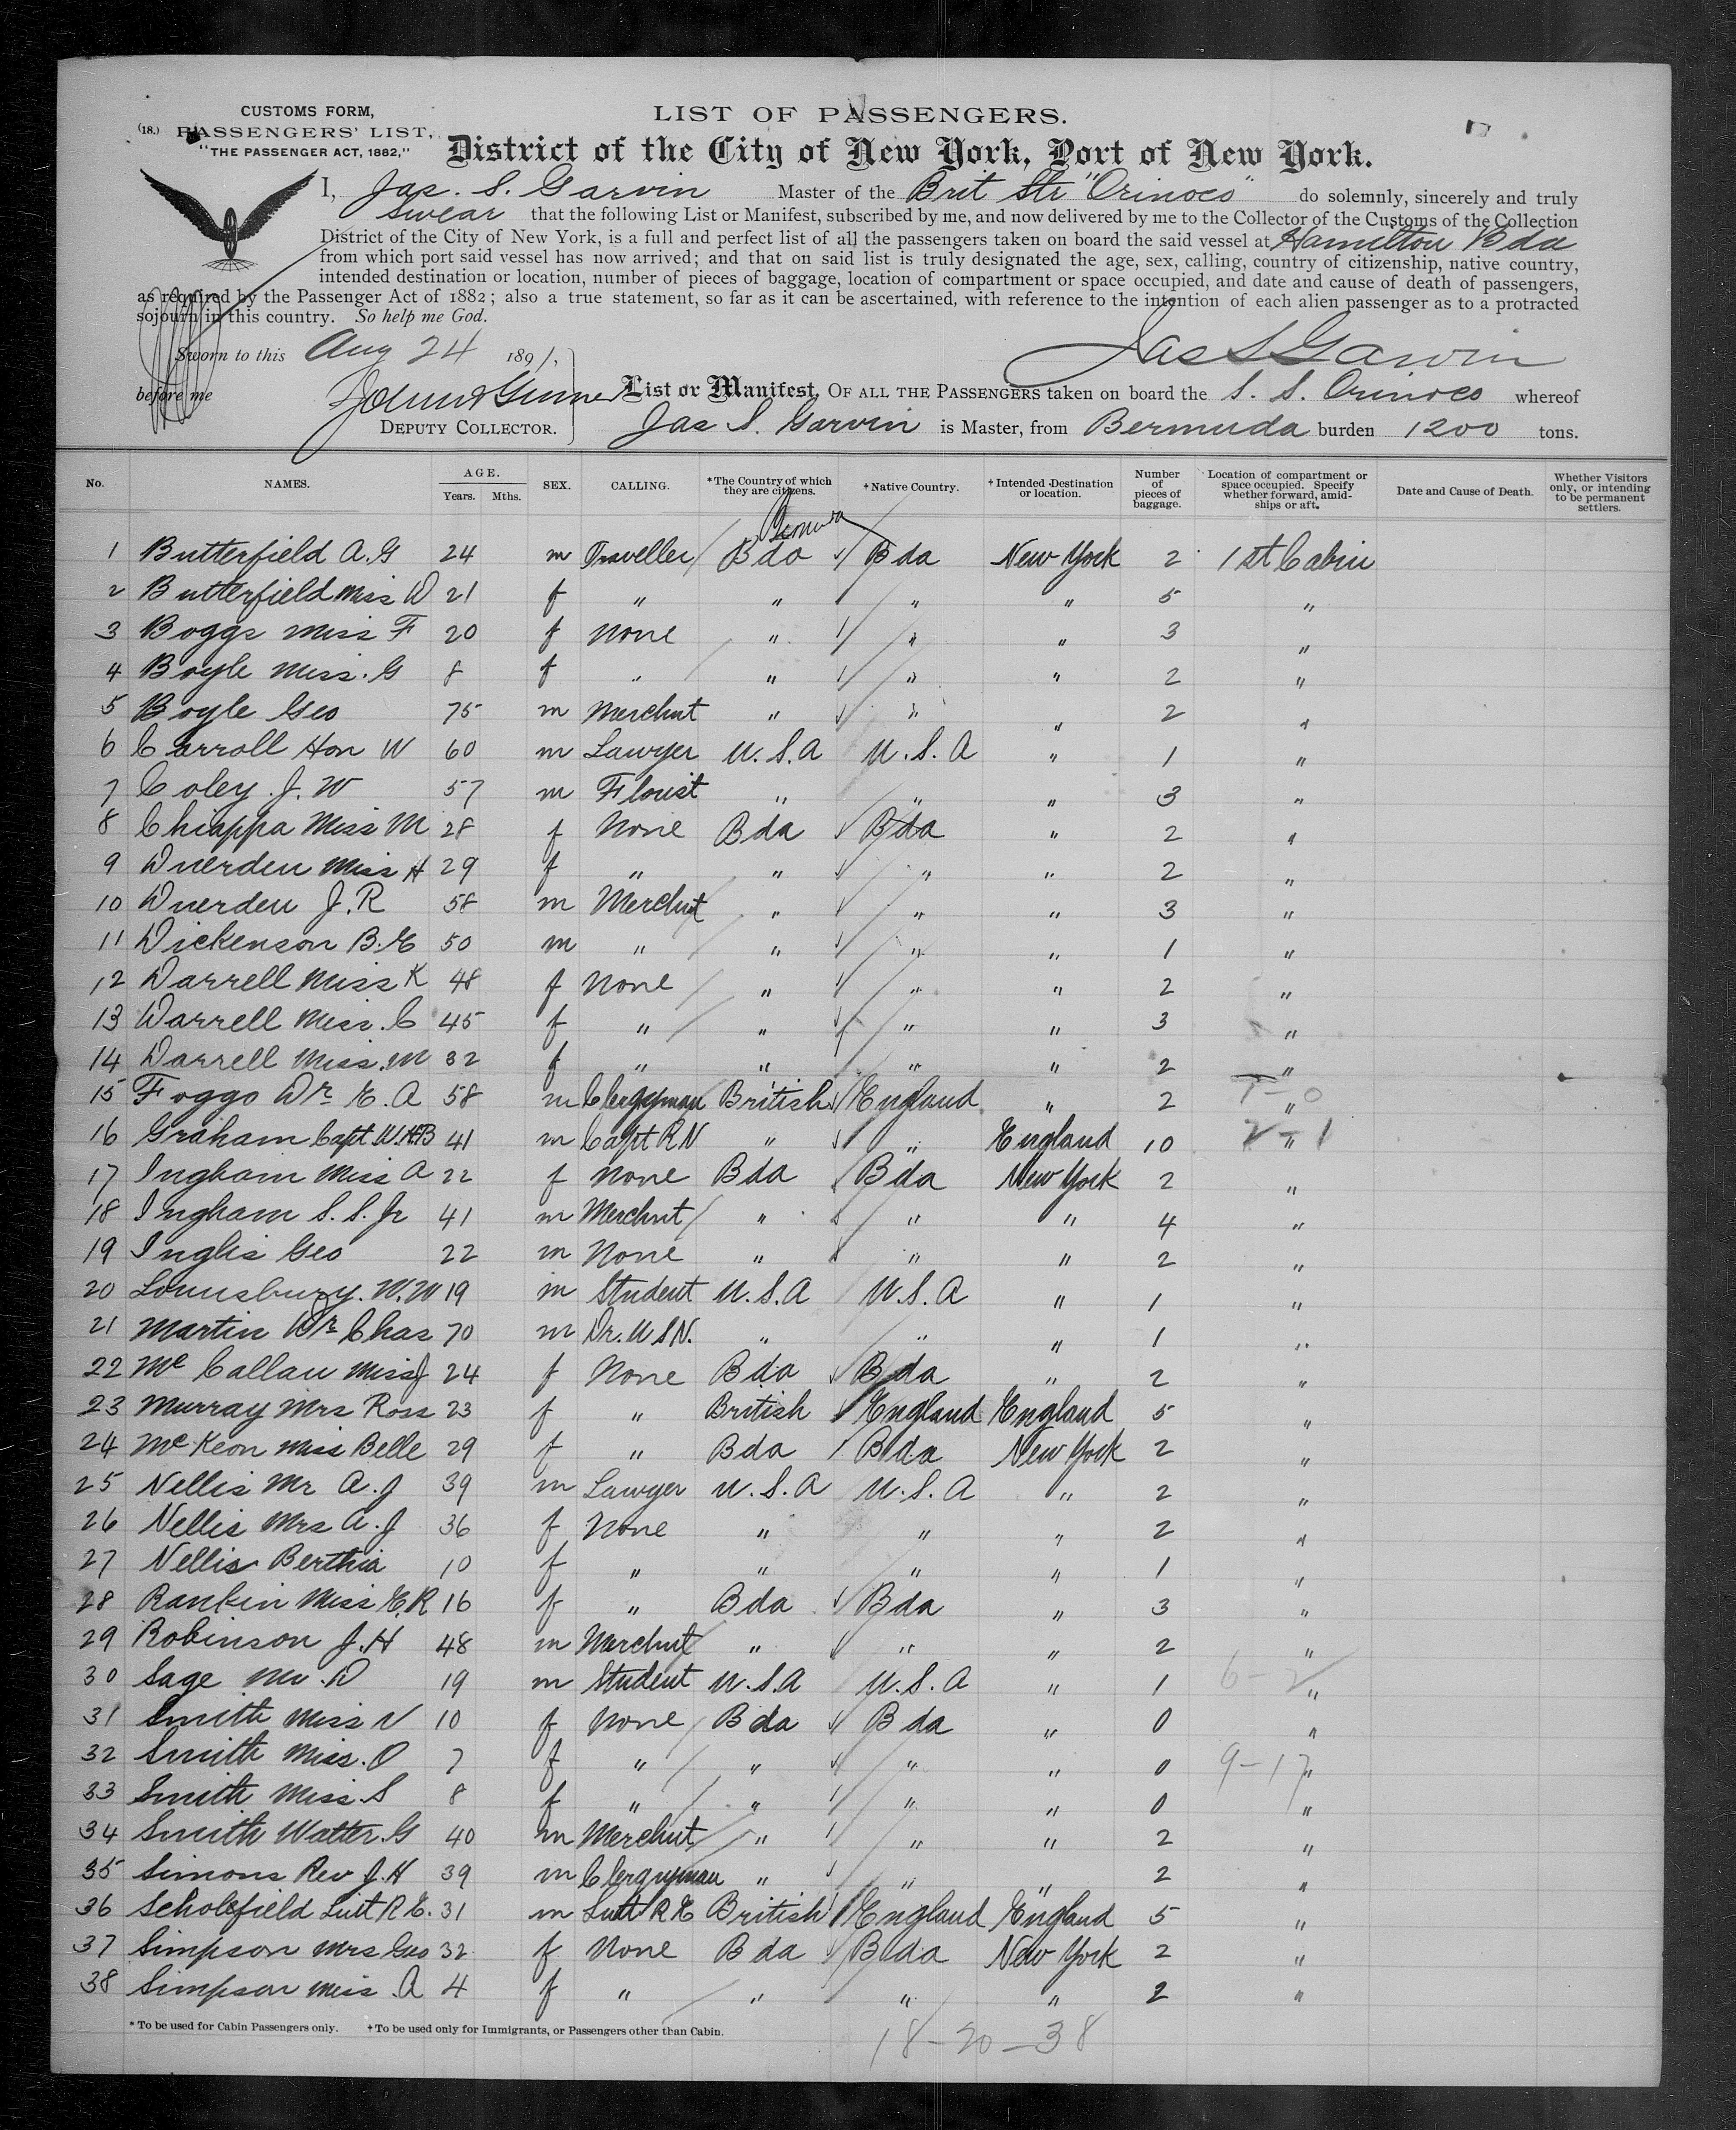 CUSTOMS FORM,
(18.) PASSENGERS' LIST,
"THE PASSENGER ACT, 1882,"
LIST OF PASSENGERS.
District of the City of New York, Port of New York.
I, Jas. S. Garvin Master of the Brit Str "Orinoco" do solemnly, sincerely and truly
swear that the following List or Manifest, subscribed by me, and now delivered by me to the Collector of the Customs of the Collection
District of the City of New York, is a full and perfect list of all the passengers taken on board the said vessel at Hamilton Bda
from which port said vessel has now arrived; and that on said list is truly designated the age, sex, calling, country of citizenship, native country,
intended destination or location, number of pieces of baggage, location of compartment or space occupied, and date and cause of death of passengers,
as required by the Passenger Act of 1882; also a true statement, so far as it can be ascertained, with reference to the intention of each alien passenger as to a protracted
sojourn in this country. So help me God.
Sworn to this Aug 24 1891, Jas S Garvin
before me
DEPUTY COLLECTOR.
List or Manifest, OF ALL THE PASSENGERS taken on board the S. S. Orinoco whereof
Jas S. Garvin is Master, from Bermuda burden 1200 tons.
No. NAMES. AGE. Years. Mths. SEX. CALLING. *The Country of which they are citizens. †Native Country. †Intended Destination or location. Number of pieces of baggage. Location of compartment or space occupied. Specify whether forward, amidships or aft. Date and Cause of Death. Whether Visitors only, or intending to be permanent settlers.
1 Butterfield A. G 24 m Traveller Bda Bda New York 2 1st Cabin
2 Butterfield Miss D 21 f " " " " 5 "
3 Boggs Miss F 20 f None " " " 3 "
4 Boyle Miss. G 8 f " " " " 2 "
5 Boyle Geo 75 m Merchnt " " " 2 "
6 Carroll Hon W 60 m Lawyer U. S. A U. S. A " 1 "
7 Coley. J. W 57 m Florist " " " 3 "
8 Chiappa Miss M 28 f None Bda Bda " 2 "
9 Duerden Miss H 29 f " " " " 2 "
10 Duerden J. R 58 m Merchnt " " " 3 "
11 Dickenson B. E 50 m " " " " 1 "
12 Darrell Miss K 48 f None " " " 2 "
13 Darrell Miss. C 45 f " " " " 3 "
14 Darrell Miss. M 32 f " " " " 2 "
15 Foggo Dr E. A 58 m Clergyman British England " 2 "
16 Graham Capt. W. H. B 41 m Capt R N " " England 10 "
17 Ingham Miss A 22 f None Bda Bda New York 2 "
18 Ingham S. S. Jr 41 m Merchnt " " " 4 "
19 Inglis Geo 22 m None " " " 2 "
20 Lounsbury. W. W 19 m Student U. S. A U. S. A " 1 "
21 Martin Dr Chas 70 m Dr. U S N. " " " 1 "
22 McCallan Miss J 24 f None Bda Bda " 2 "
23 Murray Mrs Ross 23 f " British England England 5 "
24 McKeon Miss Belle 29 f " Bda Bda New York 2 "
25 Nellis Mr A. J 39 m Lawyer U. S. A U. S. A " 2 "
26 Nellis Mrs A. J 36 f None " " " 2 "
27 Nellis Berthia 10 f " " " " 1 "
28 Rankin Miss E. R 16 f " Bda Bda " 3 "
29 Robinson J. H 48 m Merchnt " " " 2 "
30 Sage Mr. D 19 m Student U. S. A U. S. A " 1 "
31 Smith Miss V 10 f None Bda Bda " 0 "
32 Smith Miss. O 7 f " " " " 0 "
33 Smith Miss. S 8 f " " " " 0 "
34 Smith Walter. G 40 m Merchnt " " " 2 "
35 Simons Rev J. H 39 m Clergyman " " " 2 "
36 Scholefield Luit R E. 31 m Luit R E British England England 5 "
37 Simpson Mrs Geo 32 f None Bda Bda New York 2 "
38 Simpson Miss. A 4 f " " " " 2 "
* To be used for Cabin Passengers only. †To be used only for Immigrants, or Passengers other than Cabin.
18-20-38